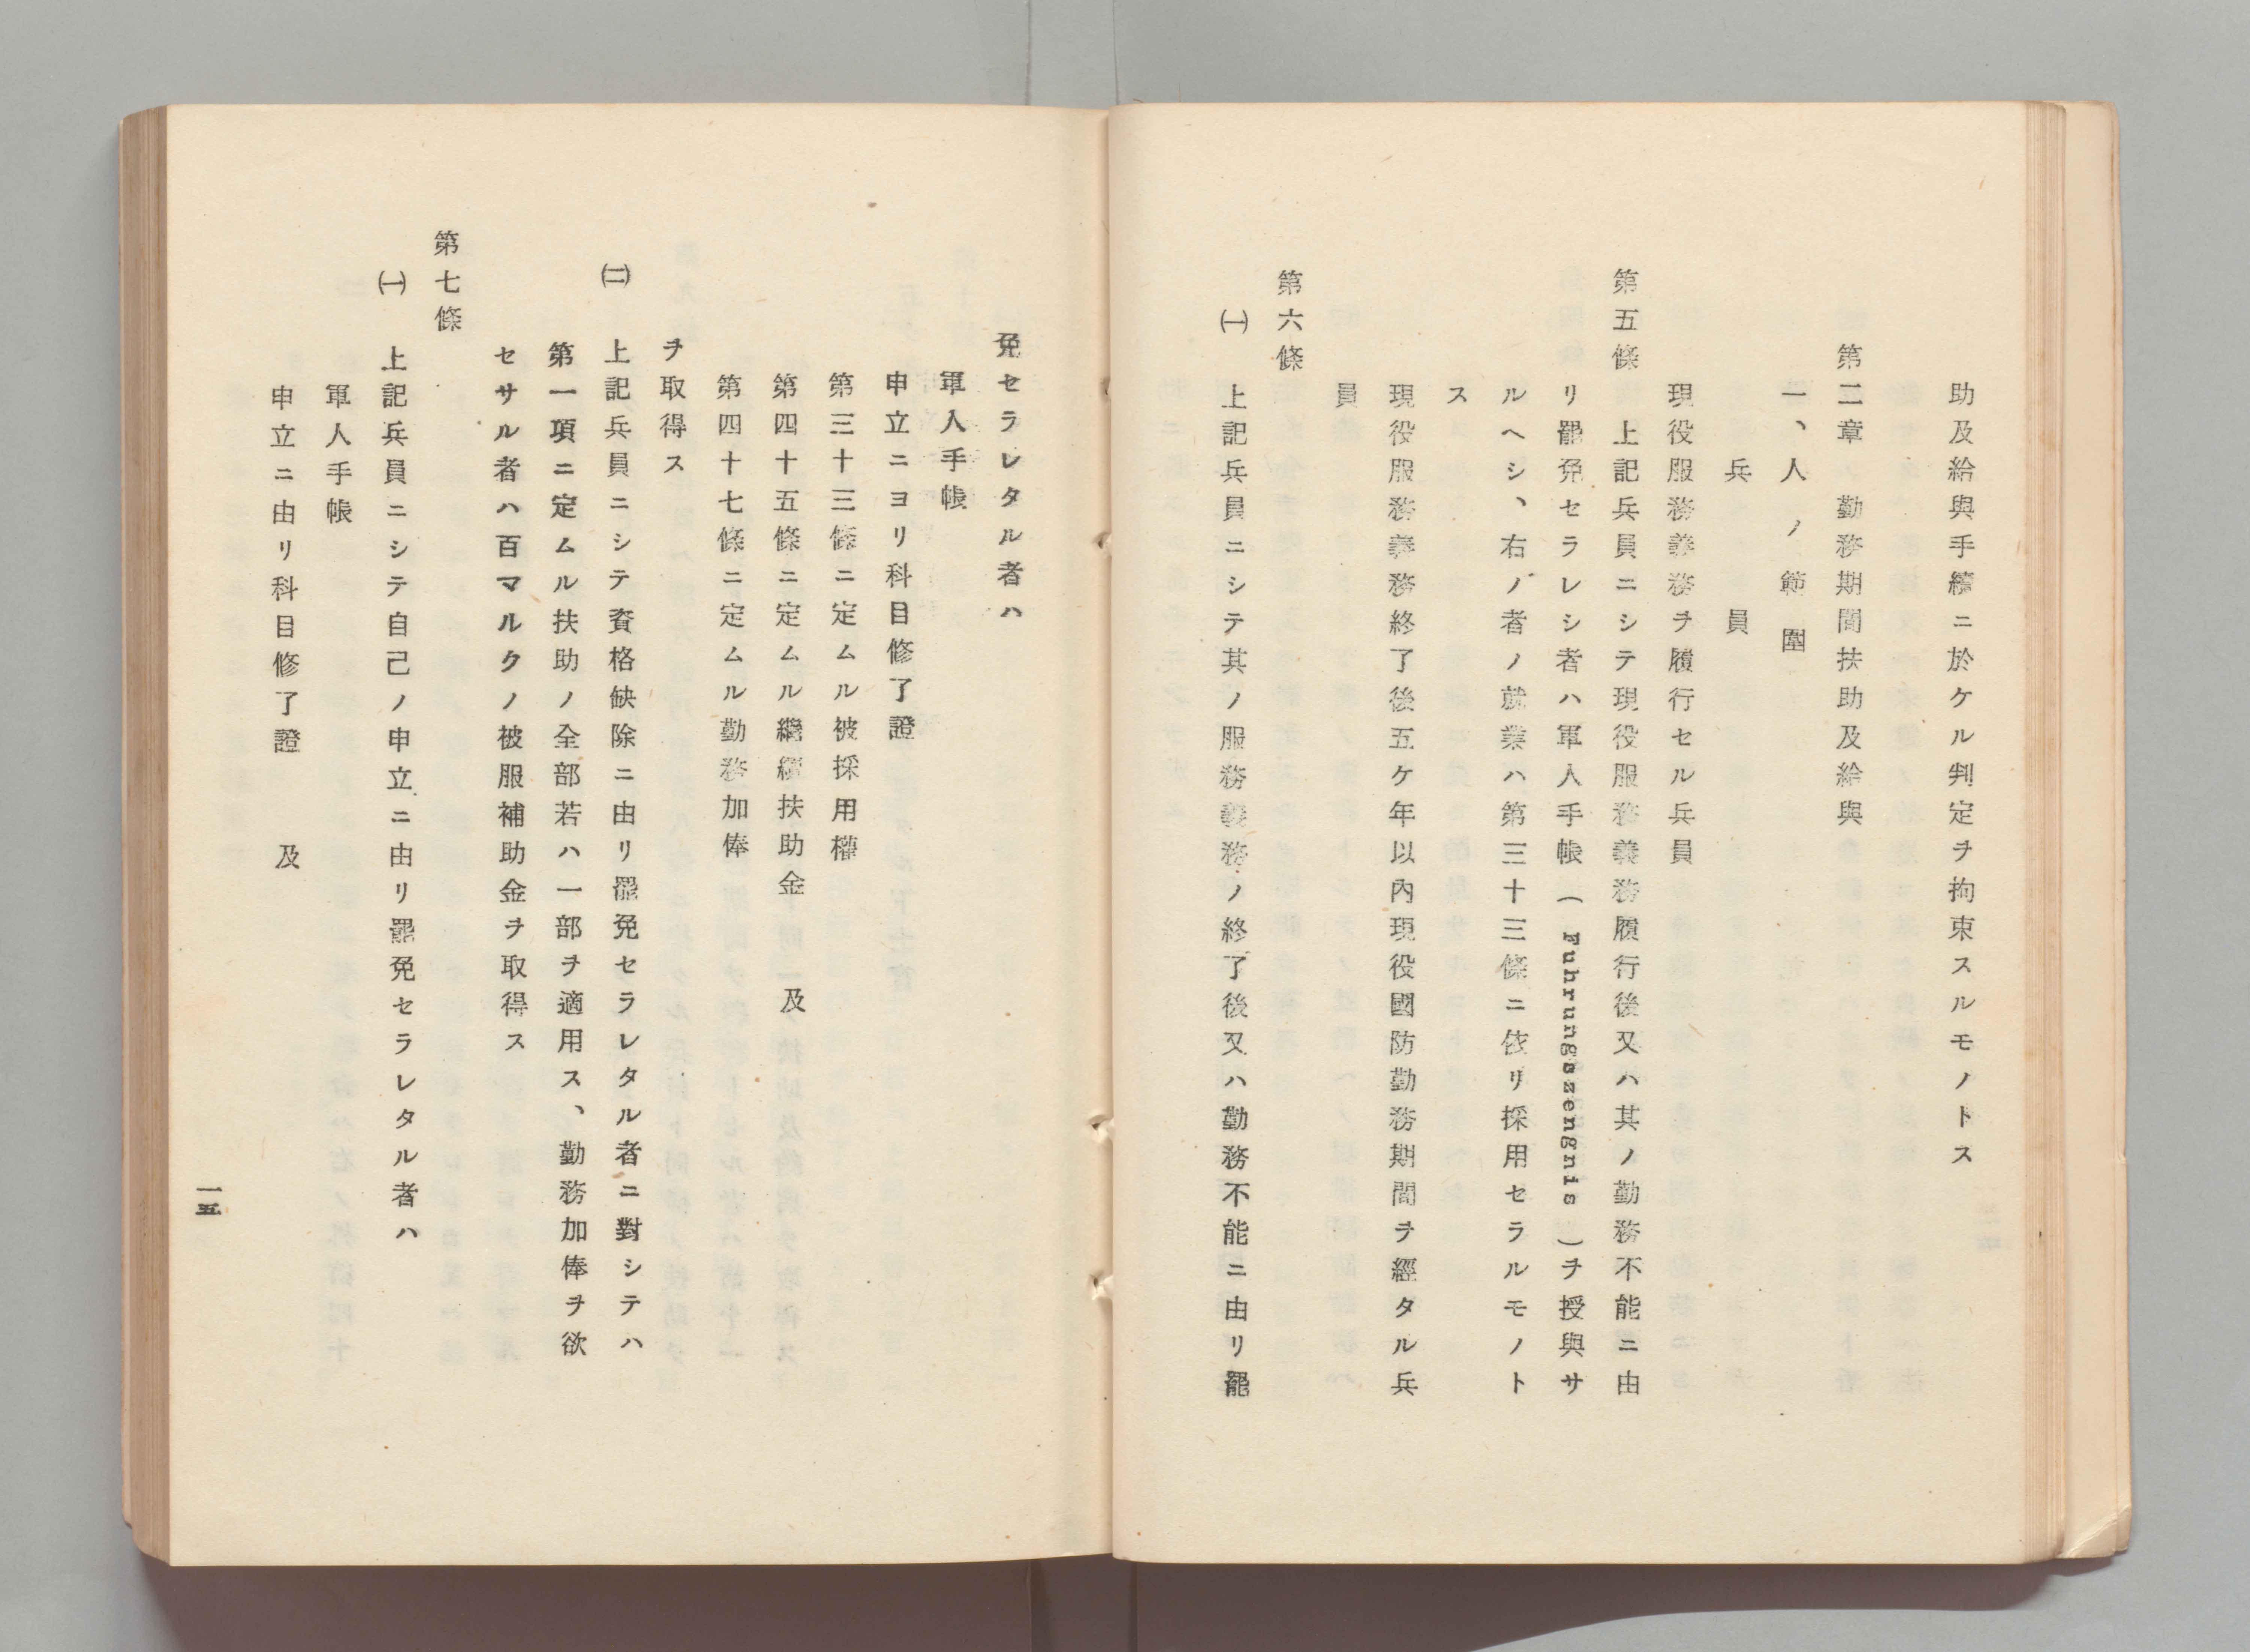 助及給與手續ニ於ケル判定ヲ拘束スルモノトス
第二章　勤務期間扶助及給與
一、人ノ範圍
兵員
現役服務義務ヲ履行セル兵員
第五條　上記兵員ニシテ現役服務義務履行後又ハ其ノ勤務不能ニ由
リ罷免セラレシ者ハ軍人手帳（Fuhrungszengnis）ヲ授與サ
ルヘシ、右ノ者ノ就業ハ第三十三條ニ依リ採用セラルモノト
ス
現役服務義務終了後五ケ年以內現役國防勤務期間ヲ經タル兵
員
第六條
㈠　上記兵員ニシテ其ノ服務義務ノ終了後又ハ勤務不能ニ由リ罷
免セラレタル者ハ
軍人手帳
申立ニヨリ科目修了證
第三十三條ニ定ムル被採用權
第四十五條ニ定ムル繼續扶助金　　及
第四十七條ニ定ムル勤務加俸
ヲ取得ス
㈡　上記兵員ニシテ資格缺除ニ由リ罷免セラレタル者ニ對シテハ
第一項ニ定ムル扶助ノ全部若ハ一部ヲ適用ス、勤務加俸ヲ欲
セサル者ハ百マルクノ被服補助金ヲ取得ス
第七條
㈠　上記兵員ニシテ自己ノ申立ニ由リ罷免セラレタル者ハ
軍人手帳
申立ニ由リ科目修了證　　及
一五